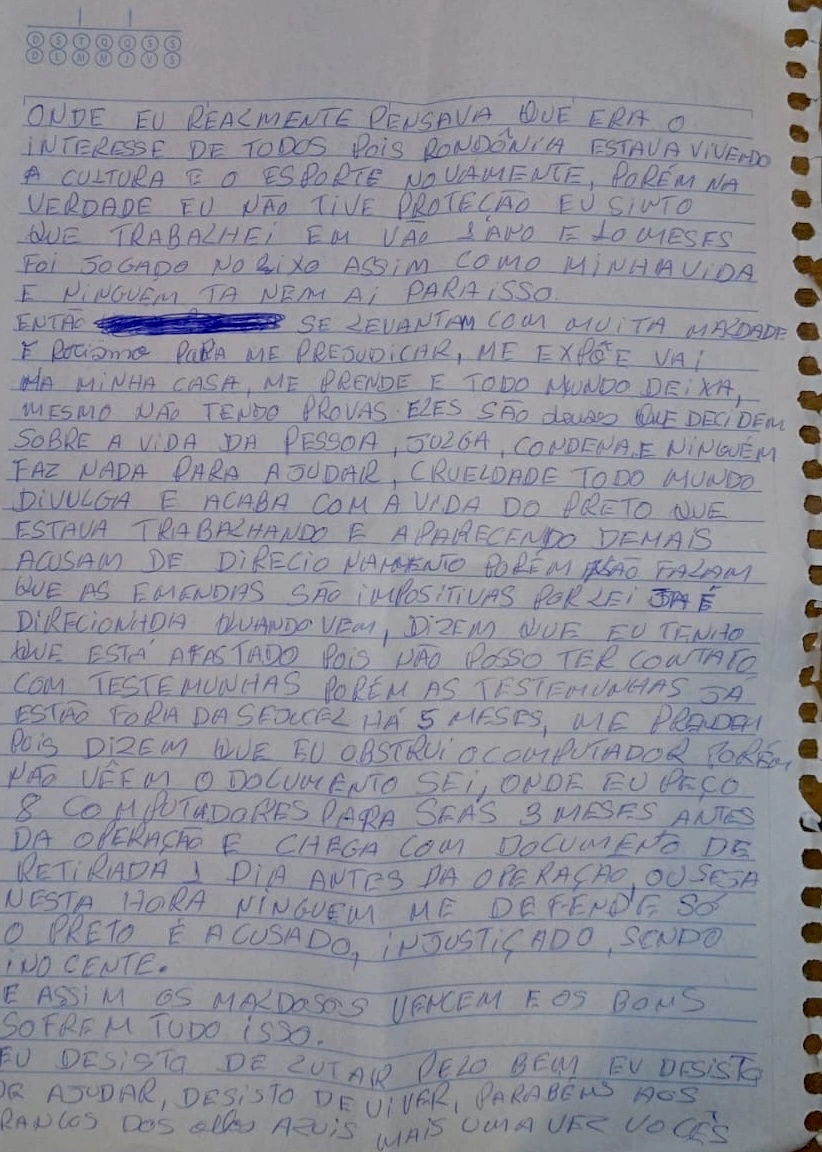 D S T Q Q S S
D L M M J V S
ONDE EU REALMENTE PENSAVA QUE ERA O
INTERESSE DE TODOS POIS RONDÔNIA ESTAVA VIVENDO
A CULTURA E O ESPORTE NOVAMENTE, PORÉM NA
VERDADE EU NÃO TIVE PROTEÇÃO EU SINTO
QUE TRABALHEI EM VÃO 1 ANO E 10 MESES
FOI JOGADO NO LIXO ASSIM COMO MINHA VIDA
E NINGUÉM TA NEM AI PARA ISSO.
ENTÃO SE LEVANTAM COM MUITA MALDADE
E Racismo PARA ME PREJUDICAR, ME EXPÕE VAI
NA MINHA CASA, ME PRENDE E TODO MUNDO DEIXA,
MESMO NÃO TENDO PROVAS ELES SÃO deuses QUE DECIDEM
SOBRE A VIDA DA PESSOA, JULGA, CONDENA, E NINGUÉM
FAZ NADA PARA AJUDAR, CRUELDADE TODO MUNDO
DIVULGA E ACABA COM A VIDA DO PRETO QUE
ESTAVA TRABALHANDO E APARECENDO DEMAIS
ACUSAM DE DIRECIONAMENTO PORÉM NÃO FALAM
QUE AS EMENDAS SÃO IMPOSITIVAS POR LEI JA É
DIRECIONADA QUANDO VEM, DIZEM QUE EU TENHO
QUE ESTÁ AFASTADO POIS NÃO POSSO TER CONTATO
COM TESTEMUNHAS PORÉM AS TESTEMUNHAS JÁ
ESTÃO FORA DA SEJUCEL HÁ 5 MESES, ME PRENDEM
POIS DIZEM QUE EU OBSTRUI O COMPUTADOR PORÉM
NÃO VÊEM O DOCUMENTO SEI, ONDE EU PEÇO
8 COMPUTADORES PARA SEAS 3 MESES ANTES
DA OPERAÇÃO E CHEGA COM DOCUMENTO DE
RETIRADA 1 DIA ANTES DA OPERAÇÃO, OU SEJA
NESTA HORA NINGUEM ME DEFENDE SÓ
O PRETO É ACUSADO, INJUSTIÇADO, SENDO
INOCENTE.
E ASSIM OS MALDOSOS VENCEM E OS BONS
SOFREM TUDO ISSO.
EU DESISTO DE LUTAR PELO BEM EU DESISTO
DE AJUDAR, DESISTO DE VIVER, PARABÉNS AOS
RANCOS DOS olhos AZUIS MAIS UMA VEZ VOCÊS